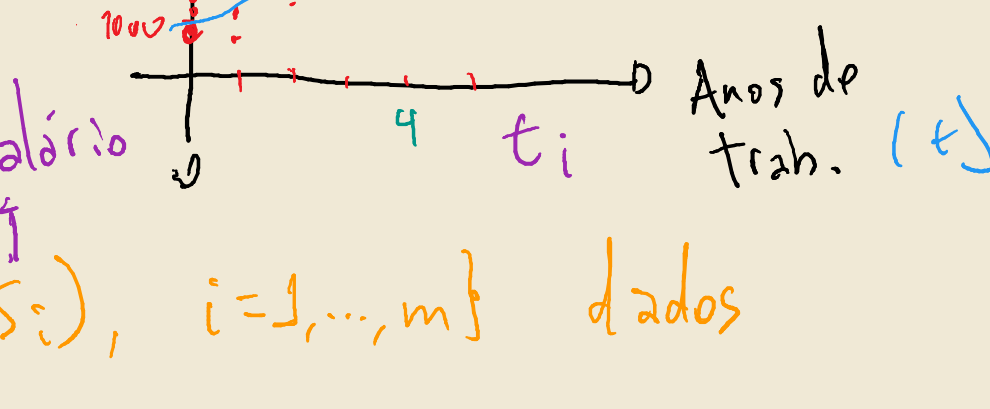 1000
Anos de
trab. (t)
4
t i
alário
si), i=1,...,m} dados